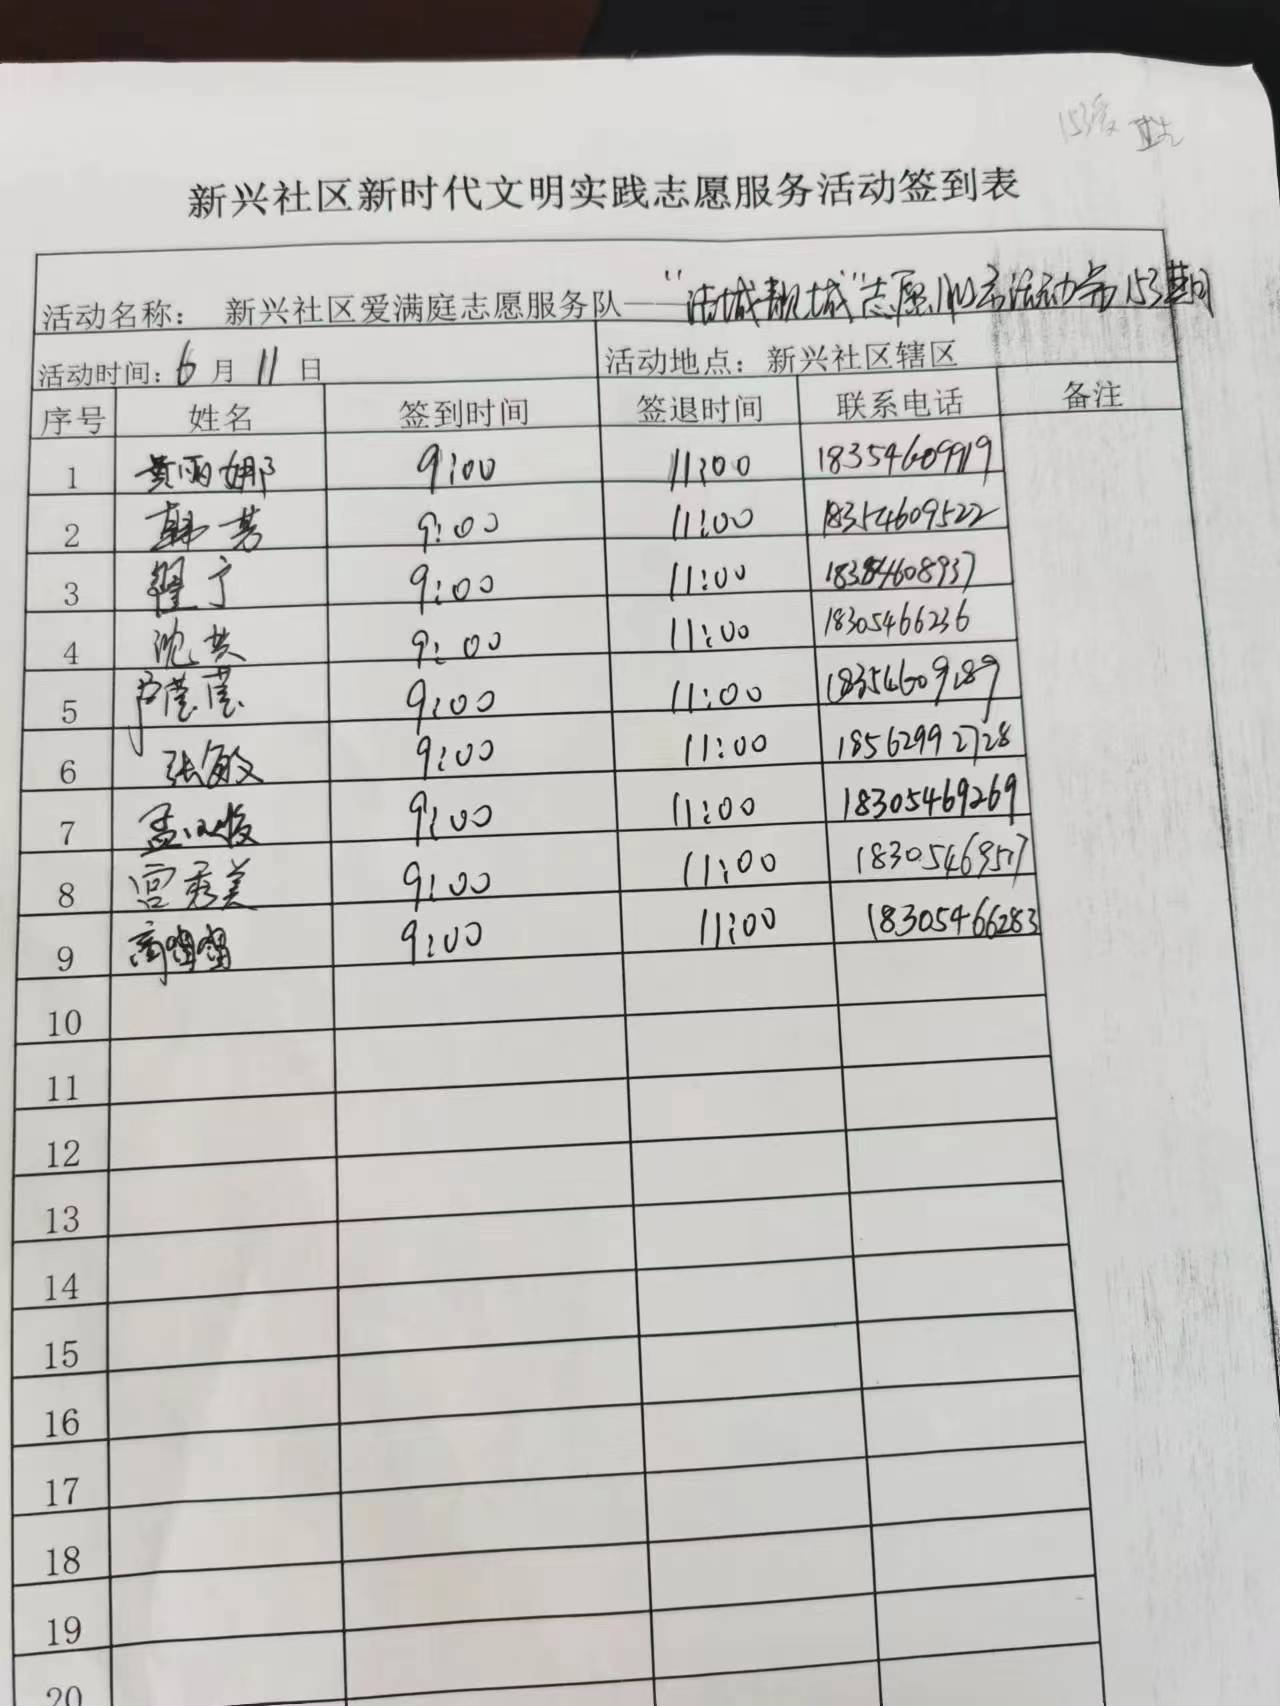 153
新兴社区新时代文明实践志愿服务活动签到表
活动名称： 新兴社区爱满庭志愿服务队——“洁城靓城”志愿服务活动第153期
活动时间：6月11日 活动地点：新兴社区辖区
序号 姓名 签到时间 签退时间 联系电话 备注
1 黄雨娜 9:00 11:00 18354609919
2 韩芳 9:00 11:00 18354609522
3 翟宁 9:00 11:00 18354608937
4 9:00 11:00 18305466236
5 芦莹莹 9:00 11:00 18354609289
6 张敏 9:00 11:00 18562992728
7 9:00 11:00 18305469269
8 宫秀美 9:00 11:00 18305469517
9 9:00 11:00 18305466283
10
11
12
13
14
15
16
17
18
19
20